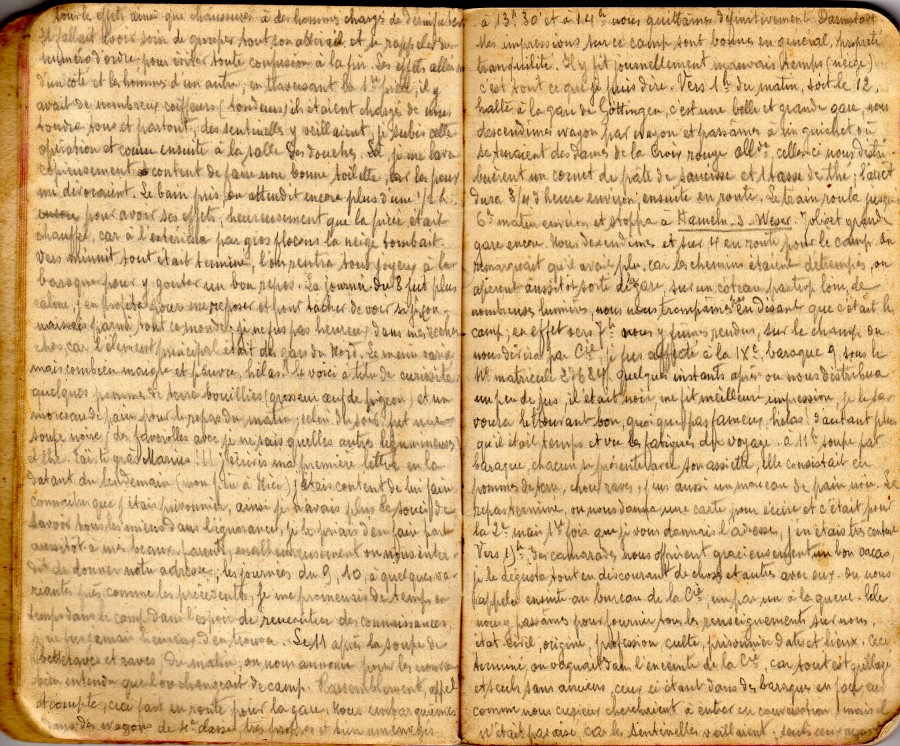 tous le effets ainsi que chaussures à des hommes chargés de désinfecter
Il fallait avoir soin de grouper tout son attirail et se rappeler du
numéro d'ordre pour éviter toute confusion à la fin. Les effets allaient
d'un côté et les hommes d'un autre; en traversant la 1ère pièce, il y
avait de nombreux coiffeurs (tondeurs) ils étaient chargés de nous
tondre tous et partout, des sentinelles y veillaient, je subis cette
opération et courus ensuite à la salle des douches. Là, je me lava
copieusement content de faire une bonne toilette, car les poux
me dévoraient. Le bain pris on attendit encore plus d'une 1/2 h.
pour avoir ses effets, heureusement que la pièce était
chauffée, car à l'extérieur par gros flocons la neige tombait.
Vers minuit tout était terminé, l'on rentra tous joyeux à la
baraque pour y goûter un bon repos. La journée du 8 fut plus
calme j'en profita pour me reposer et pour tâcher de voir si
marseillais parmi tout ce monde. je ne fus pas heureux dans mes recher
ches, car l'élément principal était des gars du Nord. Le menu varie
mais combien maigre et pauvre, hélas! le voici à titre de curiosité
quelques pommes de terre bouillies (grosseur œuf de pigeon) et un
morceau de pain pour le repas du matin, celui du soir fut une
soupe noire (des faverolles avec je ne sais quelles autres légumineuses)
et thé. Fais te gras Marius!!! j'écrivis ma première lettre en la
datant du lendemain (mon à Nice) j'étais content de lui faire
connaître que j'étais prisonnier, ainsi je n'avais plus le souci de
savoir tous les miens dans l'ignorance, je le priais d'en faire part
aussitôt à mes beaux parents, malheureusement on nous inter
dit de donner notre adresse; les journées du 9, 10, à quelques va-
riantes près comme les précédentes, je me promenais de temps en
temps dans le camp dans l'espoir de rencontrer des connaissances,
je ne fus jamais heureux d'en trouver. Le 11 après la soupe de
betteraves et raves du matin, on nous annonça pour les
bien entendu que l'on changeait de camp. Rassemblement, appel
et compte, ceci fait en route pour la gare. Nous embarquâmes
dans des wagons de 4e classe très propres et bien aménagés
à 13h.30 et à 14h. nous quittâmes définitivement Darmstadt.
Mes impressions sur ce camp sont bonnes en général, propreté
tranquilité. Il y fit journellement mauvais temps (neige)
c'est tout ce que je puis dire. Vers 1h. du matin, soit le 12,
halte à la gare de Göttingen, c'est une belle et grande gare, nous
descendîmes wagon par wagon et passâmes à un guichet où
se tenaient des dames de la Croix rouge allde, celles-ci nous distri
buèrent un cornet de pâté de saucisse et 1 tasse de thé; l'arrêt
dura 3/4 d'heure environ, ensuite en route. Le train roula jusqu'à
6h. matin environ et stoppa à Hameln s. Weser. Jolie et grande
gare encore. Nous descendîmes et sur 4 en route pour le camp. On
remarquait qu'il avait plu, car les chemins étaient détrempés, on
aperçut aussitôt sorti de gare, sur un coteau pas trop loin, de
nombreuses lumières, nous nous trompâmes pas en disant que c'était le
camp; en effet vers 7h. nous y fûmes rendus, sur le champ on
nous divisa par Cie, je fus affecté à la IXe, baraque 9, sous le
No matricule 27624, quelques instants après on nous distribua
un peu de pain, il était noir, me fit meilleur impression, je le sa-
voura le trouvant bon, quoique pas fameux, hélas! d'autant plus
qu'il était temps et vu les fatigues du voyage. à 11h. soupe par
baraque, chacun se présente avec son assiette, elle consistait en
pommes de terre, choux raves, j'eus aussi un morceau de pain noir. Le
repas terminé, on nous donna une carte pour écrire et c'était pour
la 2e mais 1re fois que je vous donnais l'adresse, j'en étais très content
Vers 15h. des camarades nous offrirent gracieusement un bon cacao,
je le dégusta tout en discourant de chose et autre avec eux. On nous
appela ensuite au bureau de la Cie, un par un à la queue-
nous y passâmes pour fournir tous les renseignements sur nous,
état civil, origine, profession, culte, prisonnier date et lieux. Ceci
terminé, on vaquait dans l'enceinte de la Cie, car tout est grillagé
et seuls sans anciens, ceux-ci étant dans des baraques en face
comme nous curieux cherchaient à entrer en conversation, mais
n'était pas aisé car les sentinelles veillaient, seuls ceux ayant